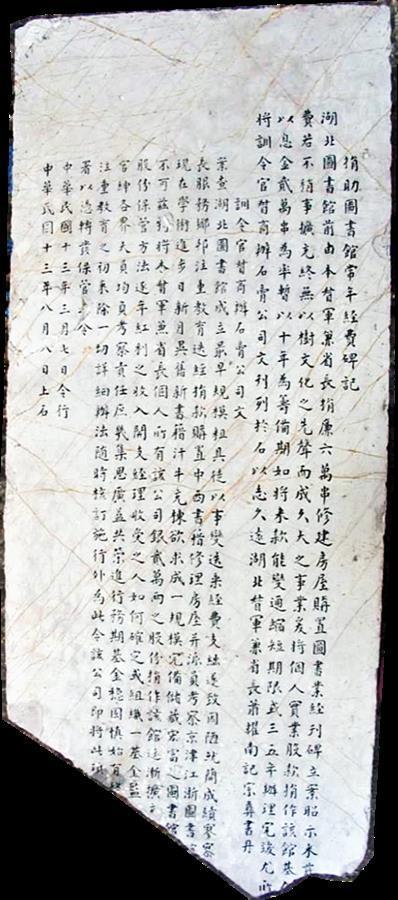 捐助圖書館常年經費碑記
湖北圖書館前由本督軍兼省長捐廉六萬串修建房屋購置圖書業經刊碑立案昭示來
費若不稍事擴充終無以樹文化之先聲而成久大之事業爰將個人實業股款捐作該館基
以息金貳萬串為率暫以十年為籌備期如將來款能變通縮短期限或三五年辦理完竣尤所
將訓令官督商辦石膏公司文列列於石以志久遠湖北督軍兼省長蕭耀南記宗彝書丹
訓令官督商辦石膏公司文
案查湖北圖書館成立最早規模粗具徒以事變迭乘經費支絀遂致因陋就簡成績寥寥
長服務鄉邦注重教育迭經捐款購置中西書籍修理房屋并派員考察京津江浙圖書
現在學術進步日新月異舊新書籍汗牛充棟欲求成一規模完備儲藏宏富之圖書館
不可茲將本督軍兼省長個人所有該公司銀貳萬兩之股份捐作該館逐漸擴
股份保管方法逐年紅利之收入開支經理收受之人如何確定或組織一基金監
官紳各界大員均負考察責任庶幾集思廣益共策進行務期基金穩固慎始有
注重教育之初衷除一切詳細辦法隨時核訂施行外為此令該公司即將此項
署以憑轉發保管此令
中華民國十三年三月七日令行
中華民國十三年八月八日上石